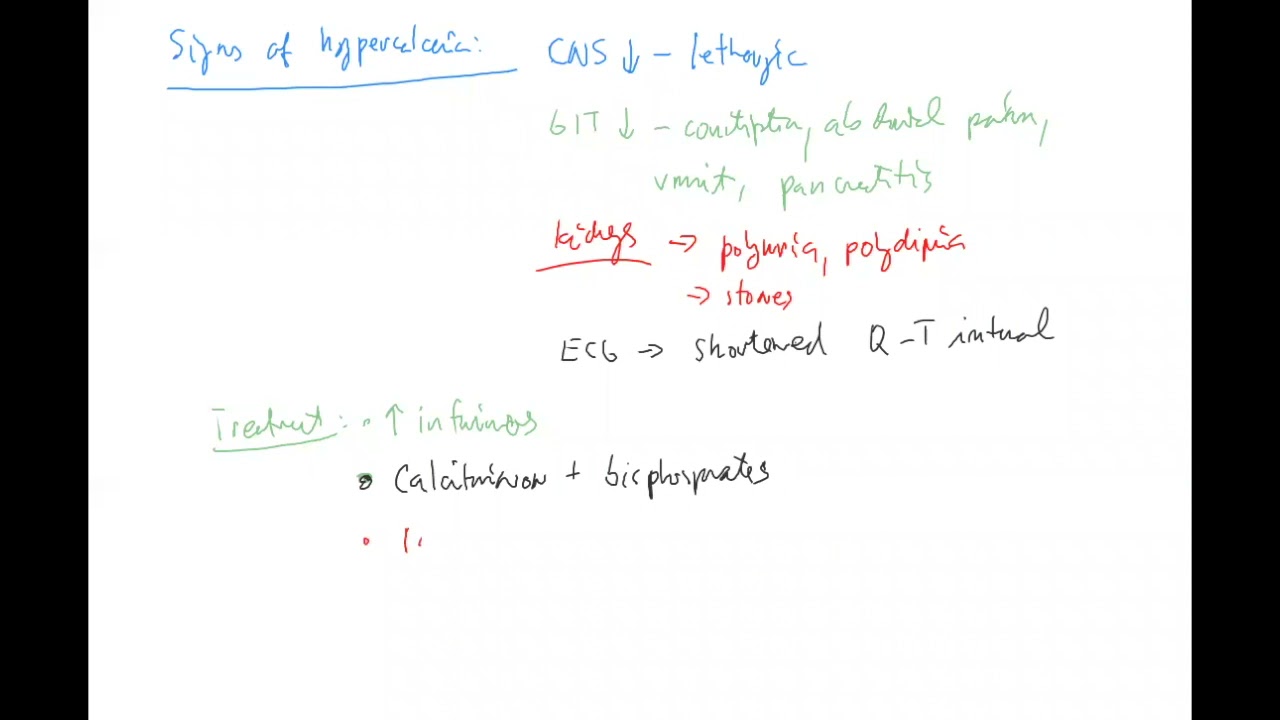 Signs of hypercalcaemia: CNS ↓ – lethargic
GIT ↓ – constipation, abdominal pain,
vomit, pancreatitis
kidneys → polyuria, polydipsia
→ stones
ECG → shortened Q-T interval
Treatment: • ↑ infusions
• Calcitonin + bisphosphonates
•